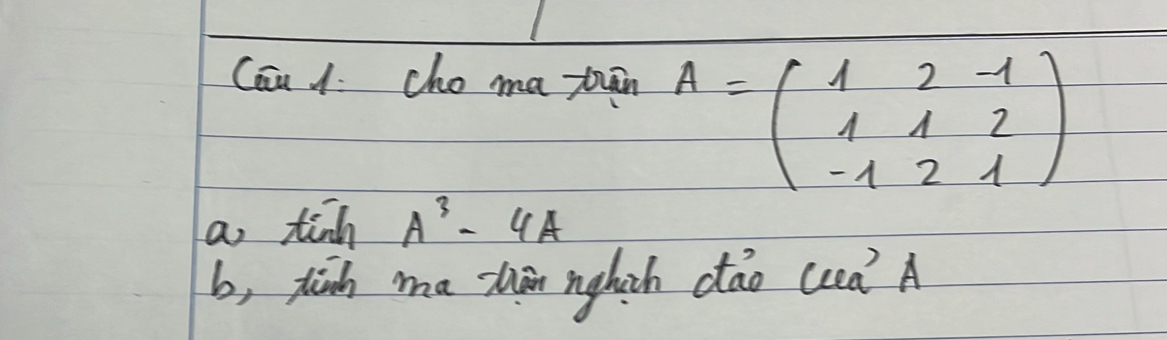 Câu 1: Cho ma trận A = ( 1 2 -1
1 1 2
-1 2 1 )
a, tính A³ - 4A
b, tính ma trận nghịch đảo của A